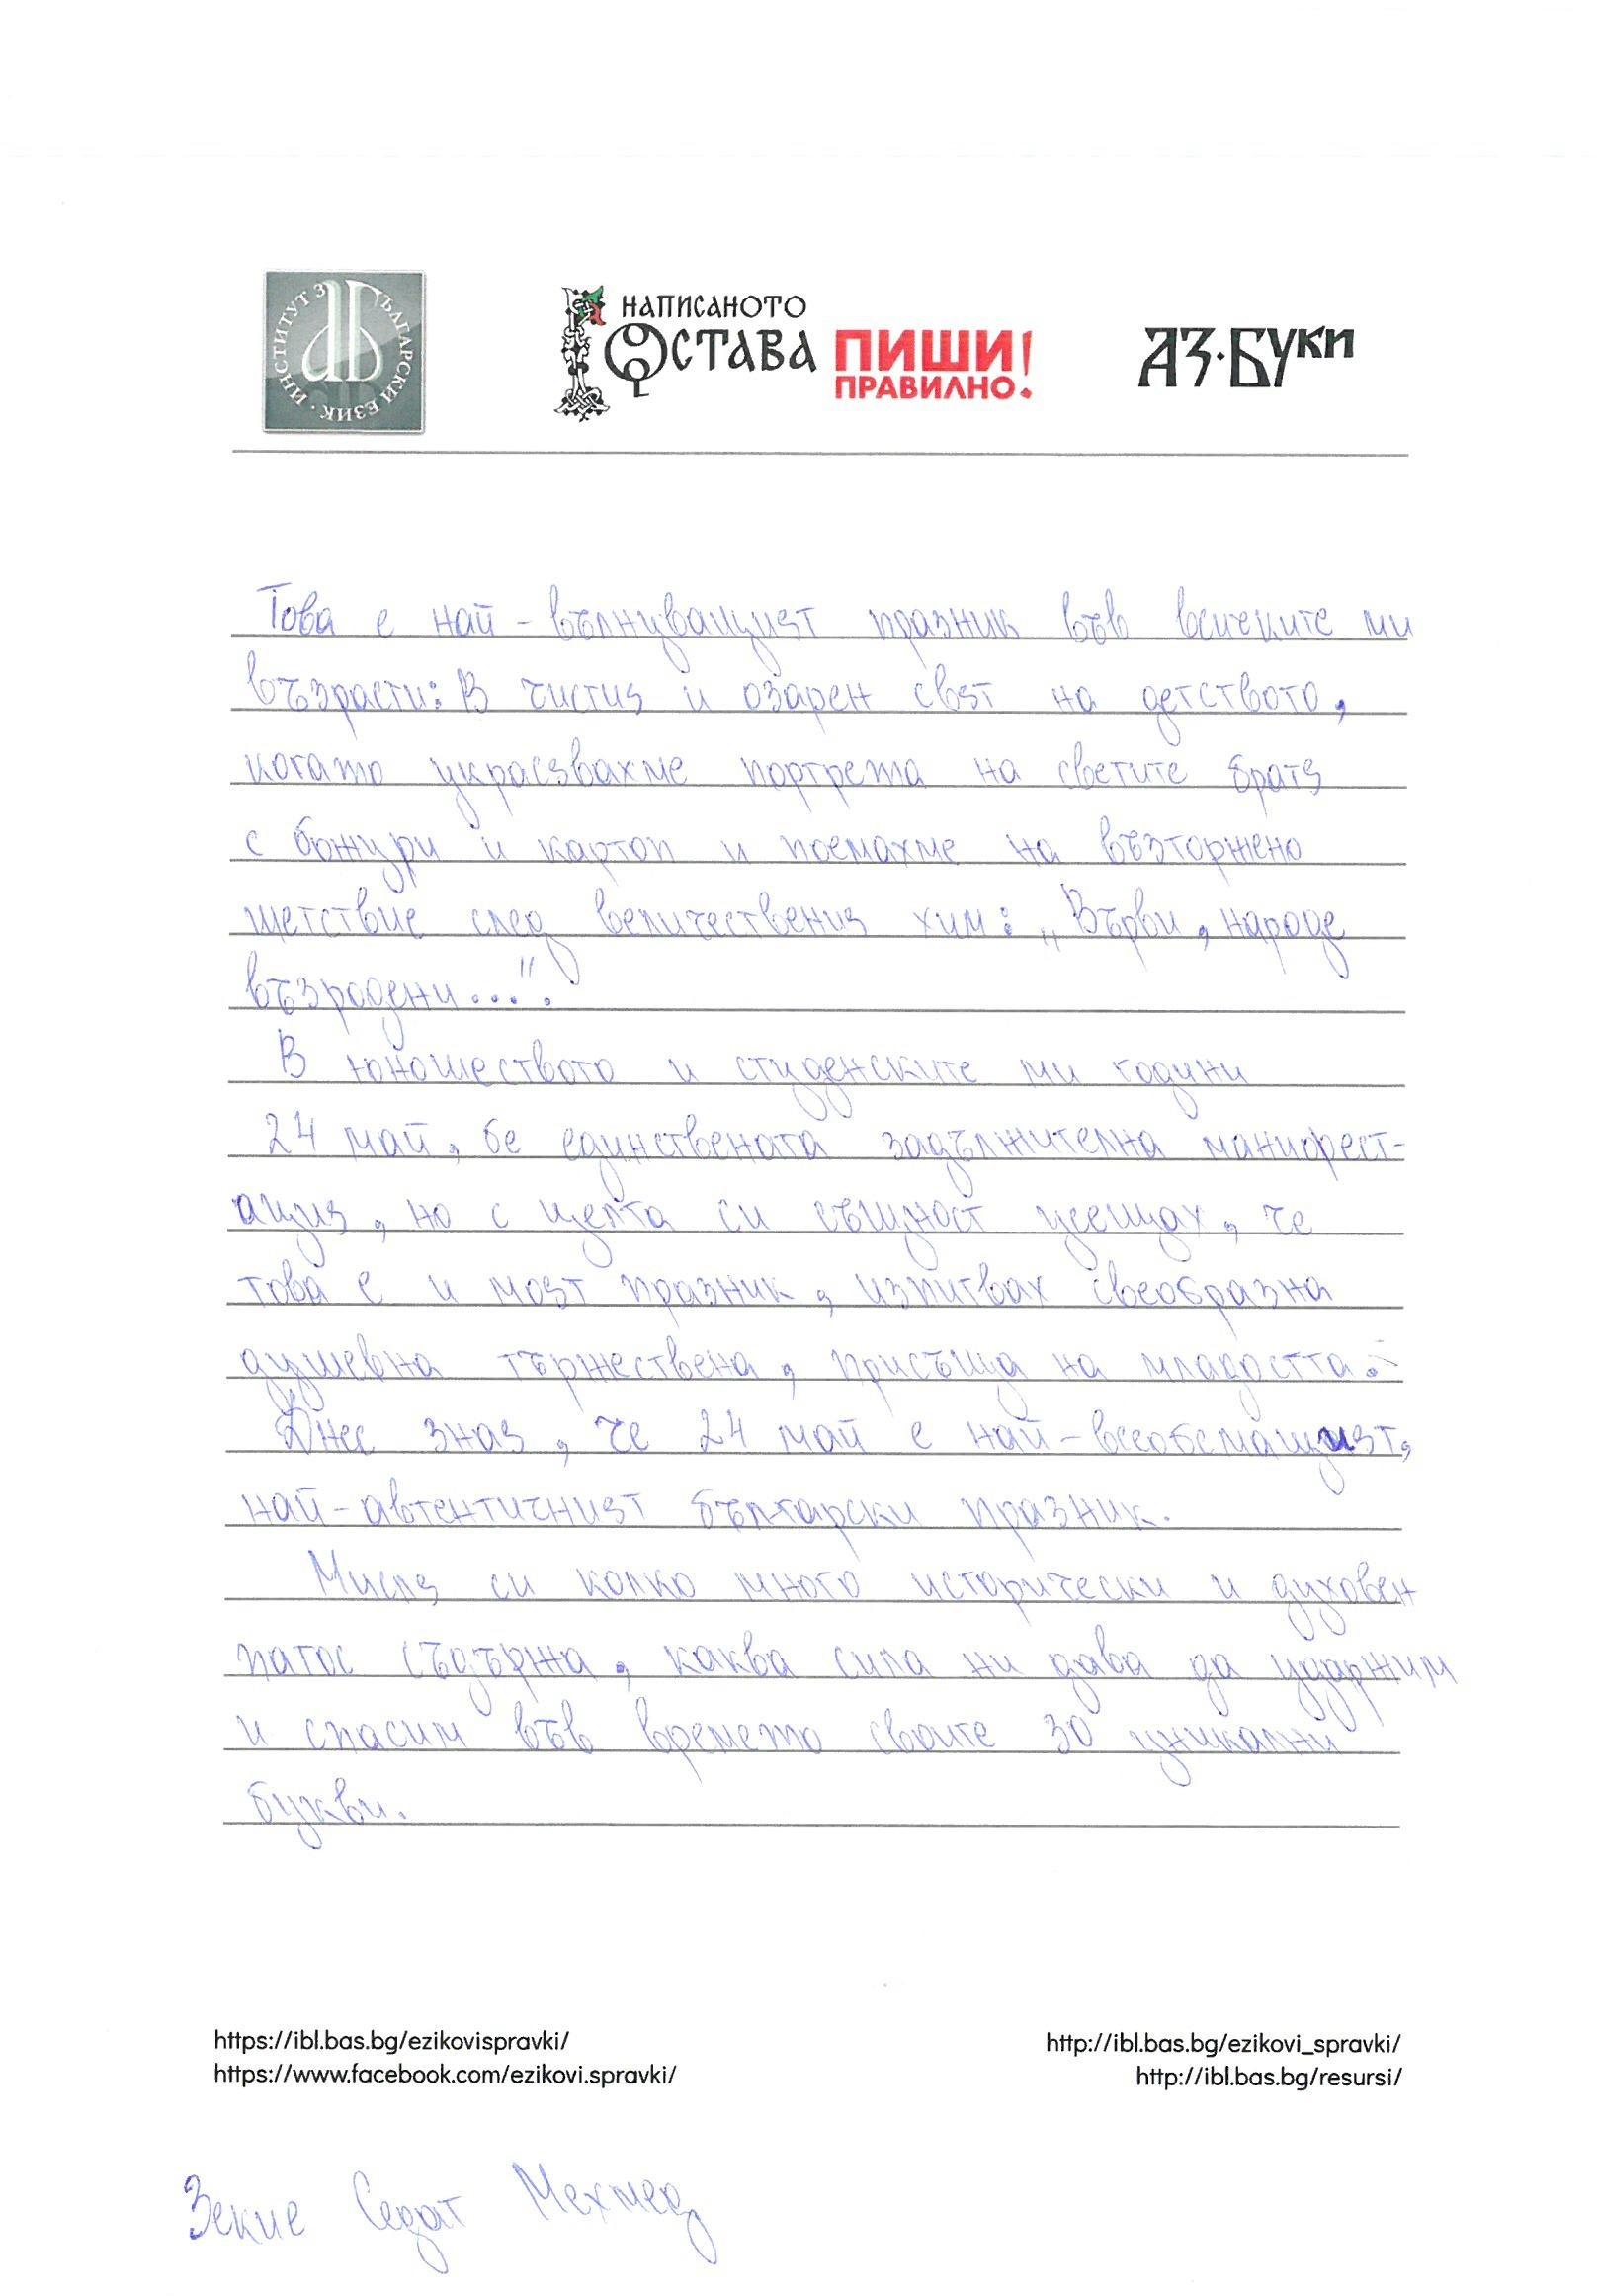 ИНСТИТУТ ЗА БЪЛГАРСКИ ЕЗИК
НАПИСАНОТО
ОСТАВА ПИШИ
ПРАВИЛНО!
АЗ·БУКИ
Това е най-вълнуващият празник във всичките ми
възрасти: В чистия и озарен свят на детството,
когато украсявахме портрета на светите братя
с божури и картоп и поемахме на възторжено
шетствие след величествения хим: „Върви, народе
възродени...".
В юношеството и студенските ми години
24 май, бе единствената задължителна манифест-
ация, но с цялта си същност усещах, че
това е и моят празник, изпитвах своеобразна
душевна тържествена, присъща на младостта.
Днес зная, че 24 май е най-всеобемащият,
най-автентичният български празник.
Мисля си колко много исторически и духовен
патос съдържа, каква сила ни дава да удържим
и спасим във времето своите 30 уникални
букви.
https://ibl.bas.bg/ezikovispravki/
https://www.facebook.com/ezikovi.spravki/
http://ibl.bas.bg/ezikovi_spravki/
http://ibl.bas.bg/resursi/
Зекие Седат Мехмед